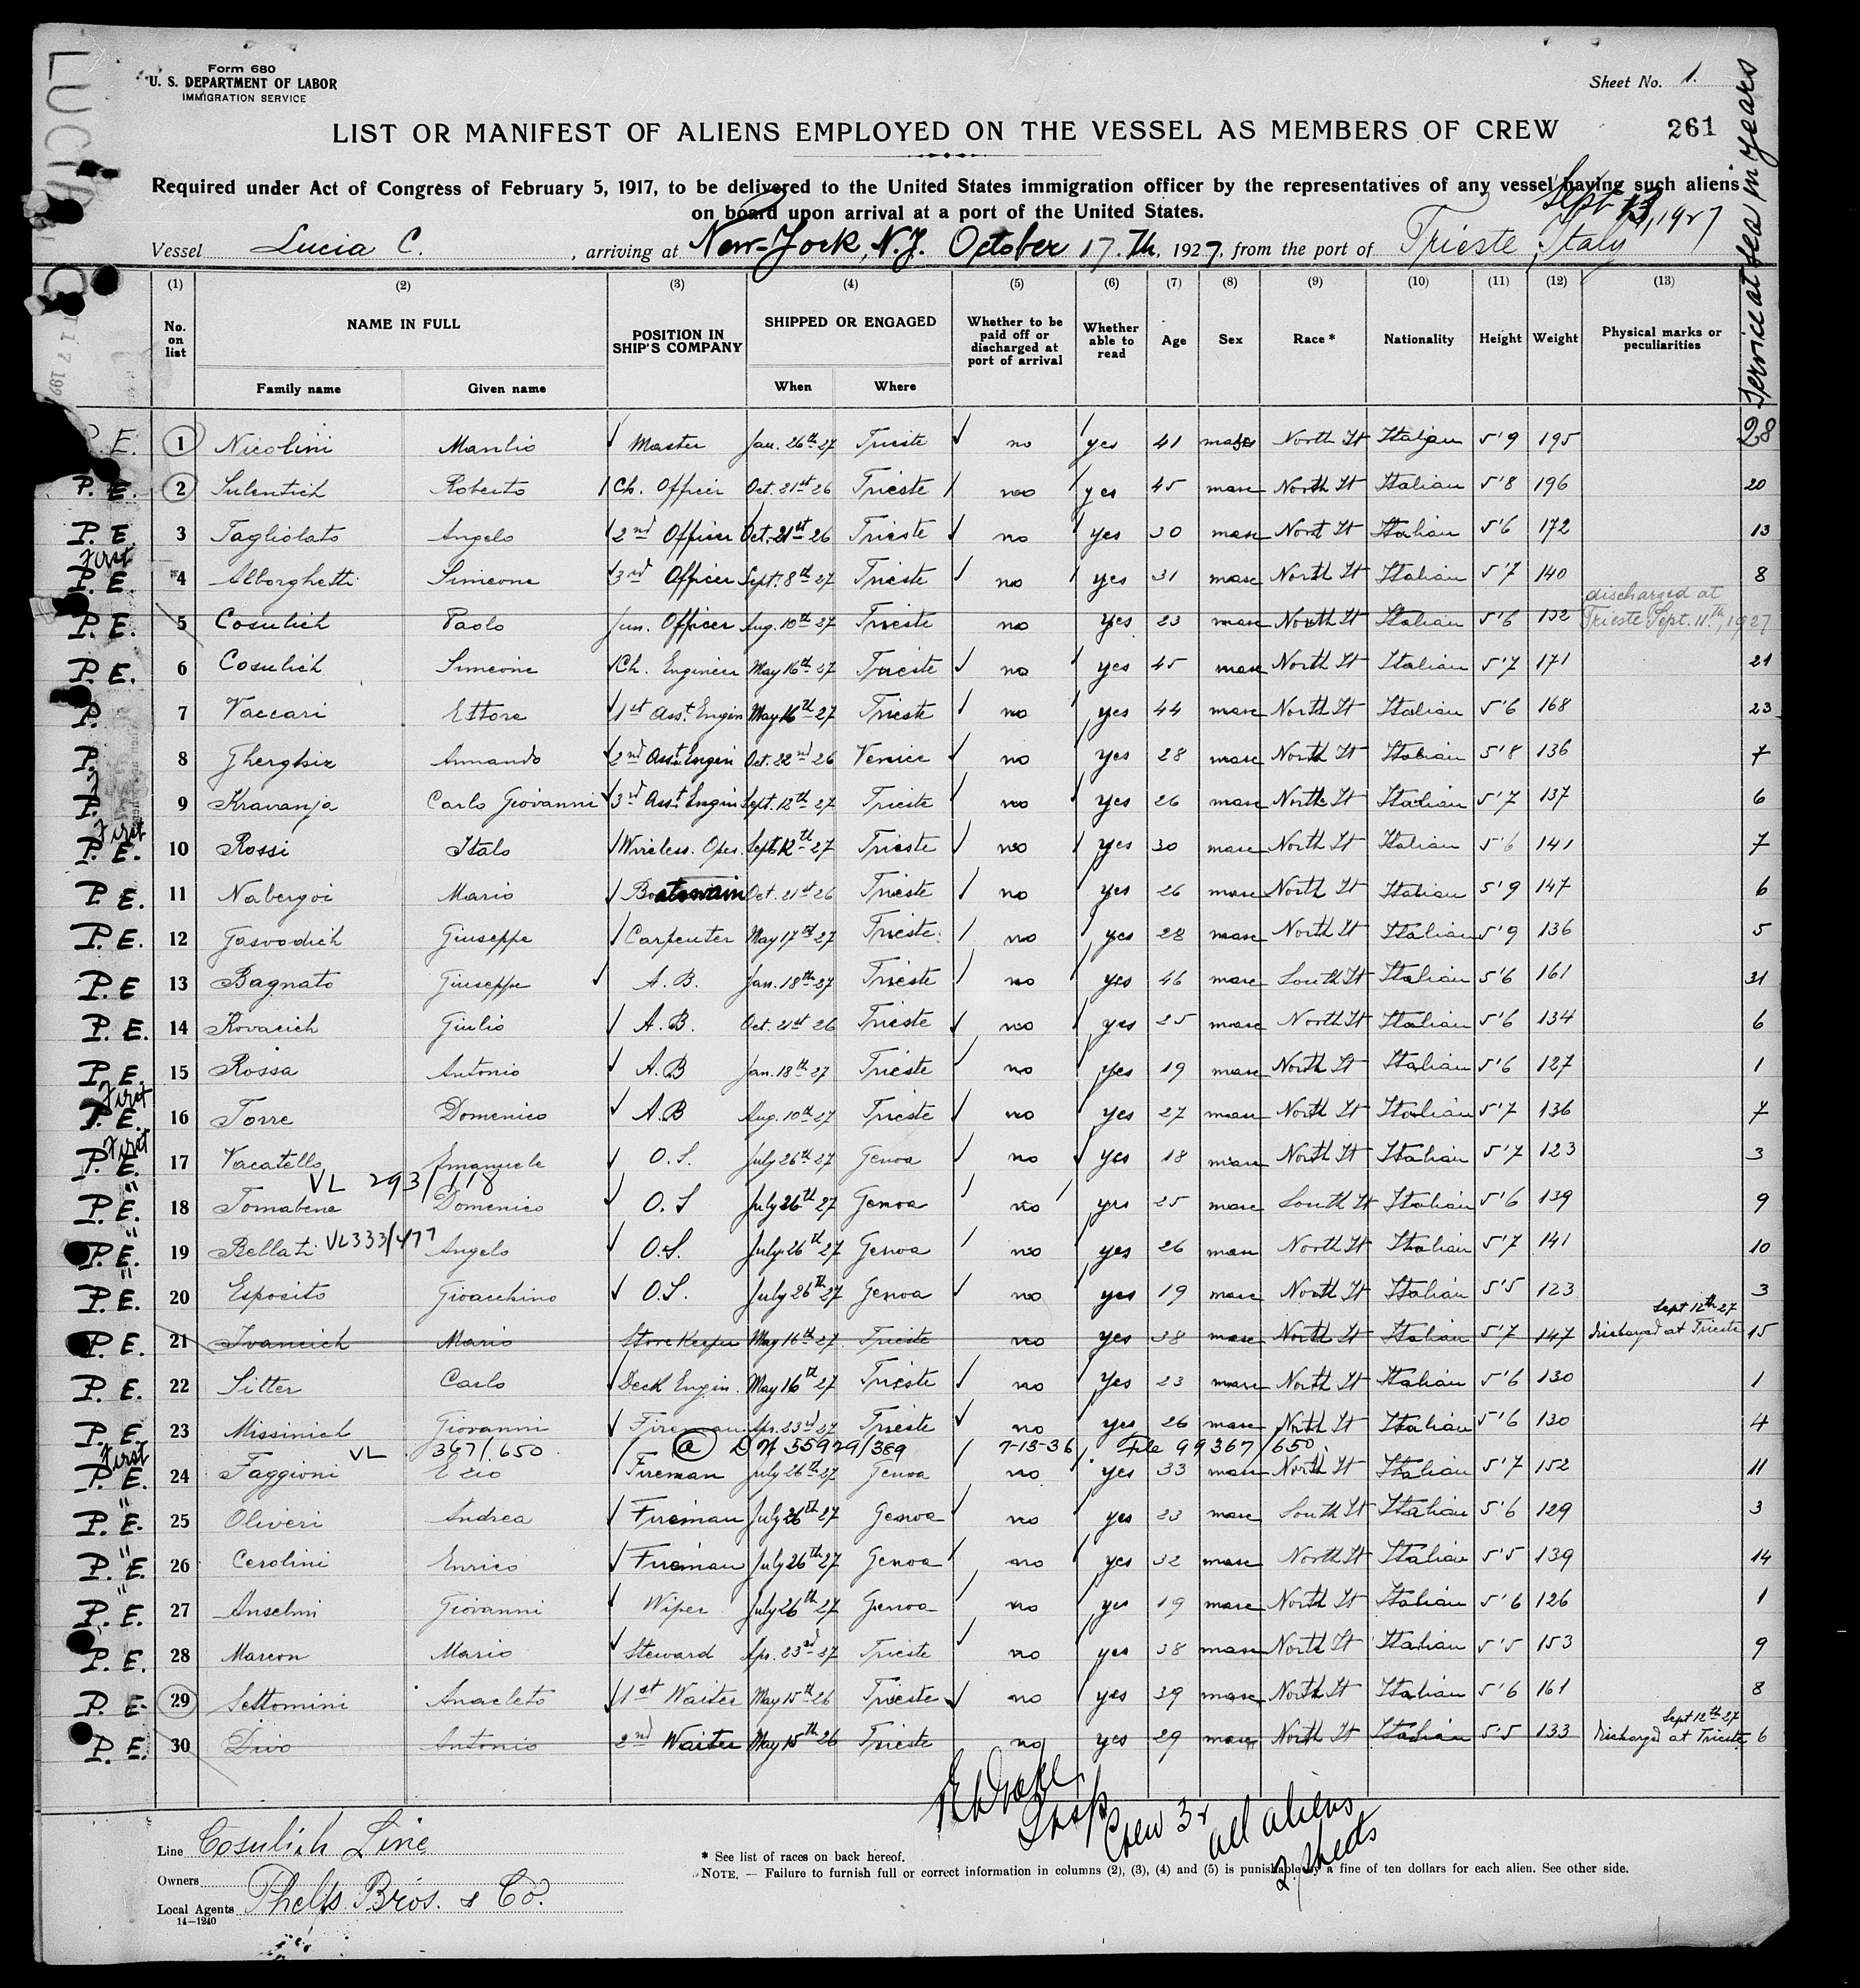 LUCIA C
Form 680
U. S. DEPARTMENT OF LABOR
IMMIGRATION SERVICE
Sheet No. 1.
LIST OR MANIFEST OF ALIENS EMPLOYED ON THE VESSEL AS MEMBERS OF CREW
261
Required under Act of Congress of February 5, 1917, to be delivered to the United States immigration officer by the representatives of any vessel having such aliens
on board upon arrival at a port of the United States.
Sept 13, 1927
Vessel Lucia C. , arriving at New-York, N.J. October 17.Th, 1927, from the port of Trieste, Italy
Service at sea in years
(1) (2) (3) (4) (5) (6) (7) (8) (9) (10) (11) (12) (13)
No. on list NAME IN FULL Family name Given name POSITION IN SHIP'S COMPANY SHIPPED OR ENGAGED When Where Whether to be paid off or discharged at port of arrival Whether able to read Age Sex Race* Nationality Height Weight Physical marks or peculiarities
P.E. 1 Nicolini Manlio Master Jan. 26th 27 Trieste no yes 41 masc North It Italian 5'9 195 28
P.E. 2 Sulentich Roberto Ch. Officer Oct. 21st 26 Trieste no yes 45 masc North It Italian 5'8 196 20
P.E. 3 Tagliolato Angelo 2nd Officer Oct. 21st 26 Trieste no yes 30 masc North It Italian 5'6 172 13
First P.E. 4 Alborghetti Simeone 3rd Officer Sept. 8th 27 Trieste no yes 31 masc North It Italian 5'7 140 8
P.E. 5 Cosulich Paolo Jun. Officer Aug. 10th 27 Trieste no yes 23 masc North It Italian 5'6 132 discharged at Trieste Sept. 11th, 1927
P.E. 6 Cosulich Simeone Ch. Engineer May 16th 27 Trieste no yes 45 masc North It Italian 5'7 171 21
P. 7 Vaccari Ettore 1st Asst. Engin May 16th 27 Trieste no yes 44 masc North It Italian 5'6 168 23
P. 8 Ghergsie Armando 2nd Asst. Engin Oct. 22nd 26 Venice no yes 28 masc North It Italian 5'8 136 7
P. 9 Kravanja Carlo Giovanni 3rd Asst Engin Sept. 12th 27 Trieste no yes 26 masc North It Italian 5'7 137 6
First P.E. 10 Rossi Italo Wireless. Oper. Sept. 12th 27 Trieste no yes 30 masc North It Italian 5'6 141 7
P.E. 11 Nabergoi Mario Boatswain Oct. 21st 26 Trieste no yes 26 masc North It Italian 5'9 147 6
P.E. 12 Gasvodich Giuseppe Carpenter May 17th 27 Trieste no yes 28 masc North It Italian 5'9 136 5
P.E 13 Bagnato Giuseppe A.B. Jan. 18th 27 Trieste no yes 46 masc South It Italian 5'6 161 31
P.E. 14 Kovacich Giulio A.B. Oct. 21st 26 Trieste no yes 25 masc North It Italian 5'6 134 6
P.E. 15 Rossa Antonio A.B Jan. 18th 27 Trieste no yes 19 masc North It Italian 5'6 127 1
First P.E. 16 Torre Domenico A.B Aug. 10th 27 Trieste no yes 27 masc North It Italian 5'7 136 7
First P.E. 17 Vacatello Emanuele O.S. July 26th 27 Genoa no yes 18 masc North It Italian 5'7 123 3
VL 293/118
" P.E. 18 Tornabene Domenico O.S July 26th 27 Genoa no yes 25 masc South It Italian 5'6 139 9
" P.E. 19 Bellati VL333/477 Angelo O.S. July 26th 27 Genoa no yes 26 masc North It Italian 5'7 141 10
" P.E. 20 Esposito Gioacchino O.S. July 26th 27 Genoa no yes 19 masc North It Italian 5'5 123 3
P.E. 21 Ivancich Mario Store Keeper May 16th 27 Trieste no yes 38 masc North It Italian 5'7 147 Sept 12th 27 discharged at Trieste 15
P.E. 22 Sitter Carlo Deck Engin. May 16th 27 Trieste no yes 23 masc North It Italian 5'6 130 1
P.E. 23 Missinich Giovanni Fireman Apr. 23rd 27 Trieste no yes 26 masc North It Italian 5'6 130 4
VL 367/650 (a) 55929/389 7-13-36 File 99367/650
First P.E. 24 Faggioni Ezio Fireman July 26th 27 Genoa no yes 33 masc North It Italian 5'7 152 11
" P.E. 25 Oliveri Andrea Fireman July 26th 27 Genoa no yes 23 masc South It Italian 5'6 129 3
" P.E. 26 Cerolini Enrico Fireman July 26th 27 Genoa no yes 32 masc North It Italian 5'5 139 14
" P.E. 27 Anselmi Giovanni Wiper July 26th 27 Genoa no yes 19 masc North It Italian 5'6 126 1
P.E. 28 Marcon Mario Steward Apr. 23rd 27 Trieste no yes 38 masc North It Italian 5'5 153 9
P.E. 29 Settomini Anacleto 1st Waiter May 15th 26 Trieste no yes 39 masc North It Italian 5'6 161 8
P.E. 30 Divo Antonio 2nd Waiter May 15th 26 Trieste no yes 29 masc North It Italian 5'5 133 Sept 12th 27 discharged at Trieste 6
Insp
Crew 32 all aliens
2 sheets
Line Cosulich Line
Owners
Local Agents Phelps Bros. & Co.
14—1240
* See list of races on back hereof.
NOTE. — Failure to furnish full or correct information in columns (2), (3), (4) and (5) is punishable by a fine of ten dollars for each alien. See other side.